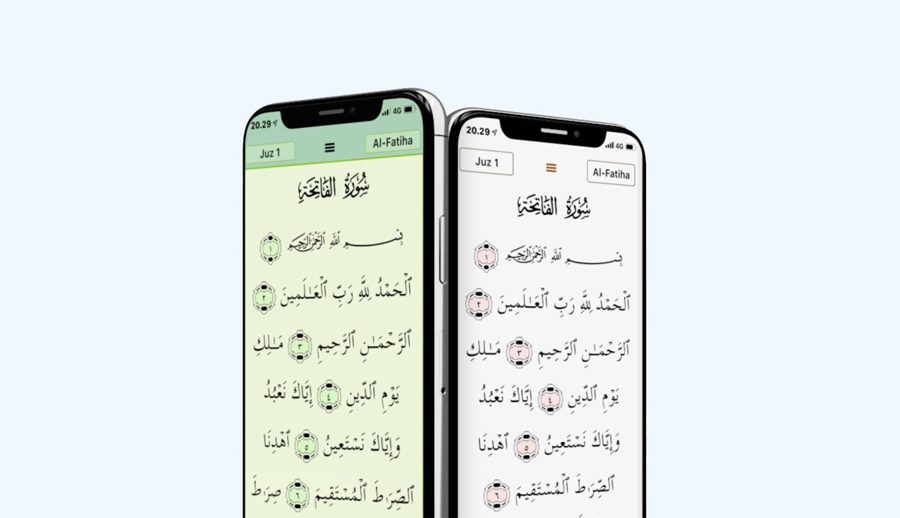 20.29
4G
Juz 1
Al-Fatiha
سُورَةُ الفَاتِحَةِ
بِسْمِ ٱللَّهِ ٱلرَّحْمَٰنِ ٱلرَّحِيمِ ١
ٱلْحَمْدُ لِلَّهِ رَبِّ ٱلْعَـٰلَمِينَ ٢
ٱلرَّحْمَـٰنِ ٱلرَّحِيمِ ٣ مَـٰلِكِ
يَوْمِ ٱلدِّينِ ٤ إِيَّاكَ نَعْبُدُ
وَإِيَّاكَ نَسْتَعِينُ ٥ ٱهْدِنَا
ٱلصِّرَٰطَ ٱلْمُسْتَقِيمَ ٦ صِرَٰطَ
20.29
4G
Juz 1
Al-Fatiha
سُورَةُ الفَاتِحَةِ
بِسْمِ ٱللَّهِ ٱلرَّحْمَٰنِ ٱلرَّحِيمِ ١
ٱلْحَمْدُ لِلَّهِ رَبِّ ٱلْعَـٰلَمِينَ ٢
ٱلرَّحْمَـٰنِ ٱلرَّحِيمِ ٣ مَـٰلِكِ
يَوْمِ ٱلدِّينِ ٤ إِيَّاكَ نَعْبُدُ
وَإِيَّاكَ نَسْتَعِينُ ٥ ٱهْدِنَا
ٱلصِّرَٰطَ ٱلْمُسْتَقِيمَ ٦